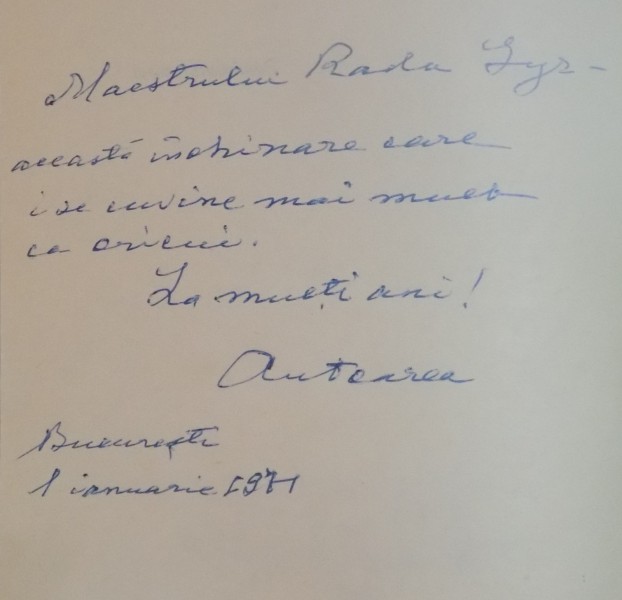 Maestrului Radu Gyr -
această închinare care
i se cuvine mai mult
ca oricui.
La mulți ani!
Autoarea
București
1 ianuarie 1971